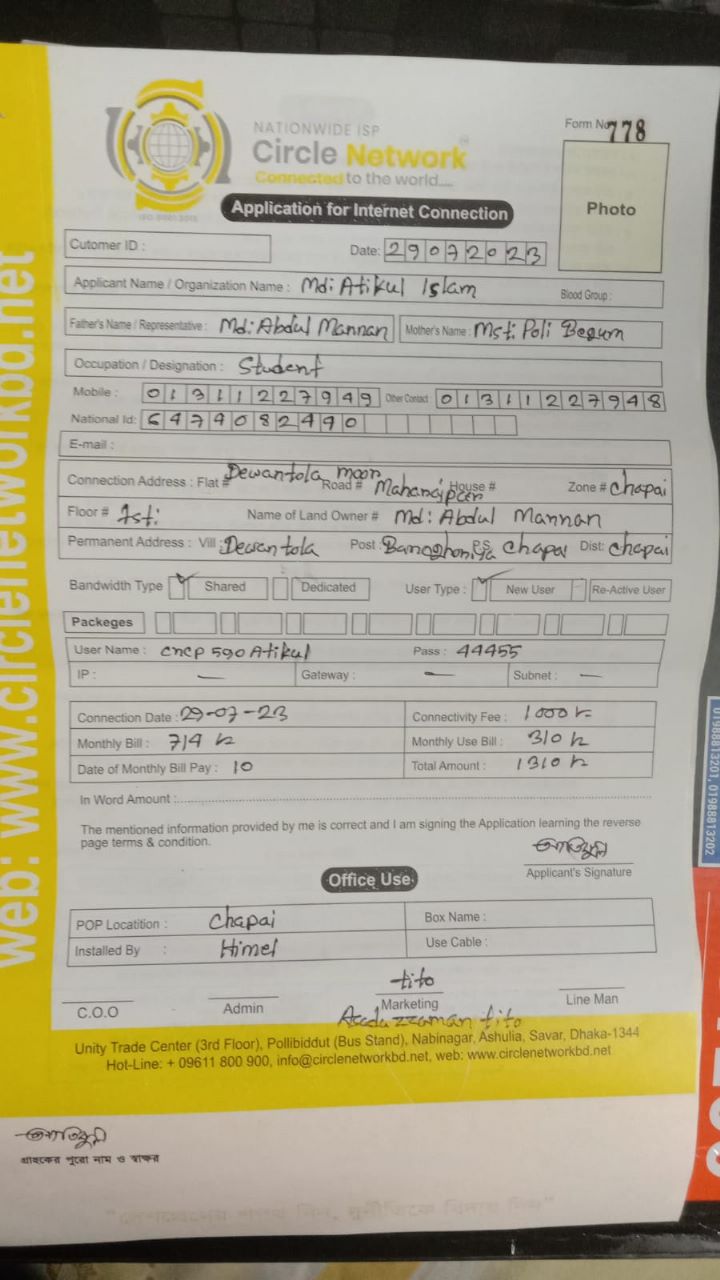 NATIONWIDE ISP
Circle Network
Connected to the world....
ISO 9001:2015
Form No 778
Photo
Application for Internet Connection
Cutomer ID :
Date: 29072023
Applicant Name / Organization Name : Md: Atikul Islam
Blood Group :
Father's Name / Representative : Md: Abdul Mannan
Mother's Name : Mst: Poli Begum
Occupation / Designation : Student
Mobile : 01311227949
Other Contact 01311227948
National Id: 6474082490
E-mail :
Connection Address : Flat # Dewantola moor Road # House # Zone # Chapai
Floor # 1st: Name of Land Owner # Md: Abdul Mannan
Permanent Address : Vill : Dewantola Post : P.S Chapai Dist: Chapai
Bandwidth Type Shared Dedicated User Type : New User Re-Active User
Packeges
User Name : cncp 590 Atikul Pass : 44455
IP : — Gateway : — Subnet : —
Connection Date : 29-07-23 Connectivity Fee : 1000
Monthly Bill : 714 Monthly Use Bill : 310
Date of Monthly Bill Pay : 10 Total Amount : 1310
In Word Amount :
The mentioned information provided by me is correct and I am signing the Application learning the reverse
page terms & condition.
Applicant's Signature
Office Use
POP Locatition : Chapai Box Name :
Installed By : Himel Use Cable :
tito
C.O.O Admin Marketing Line Man
Asaduzzaman tito
Unity Trade Center (3rd Floor), Pollibiddut (Bus Stand), Nabinagar, Ashulia, Savar, Dhaka-1344
Hot-Line: + 09611 800 900, info@circlenetworkbd.net, web: www.circlenetworkbd.net
গ্রাহকের পুরো নাম ও স্বাক্ষর
web: www.circlenetworkbd.net
01988813201, 01988813202